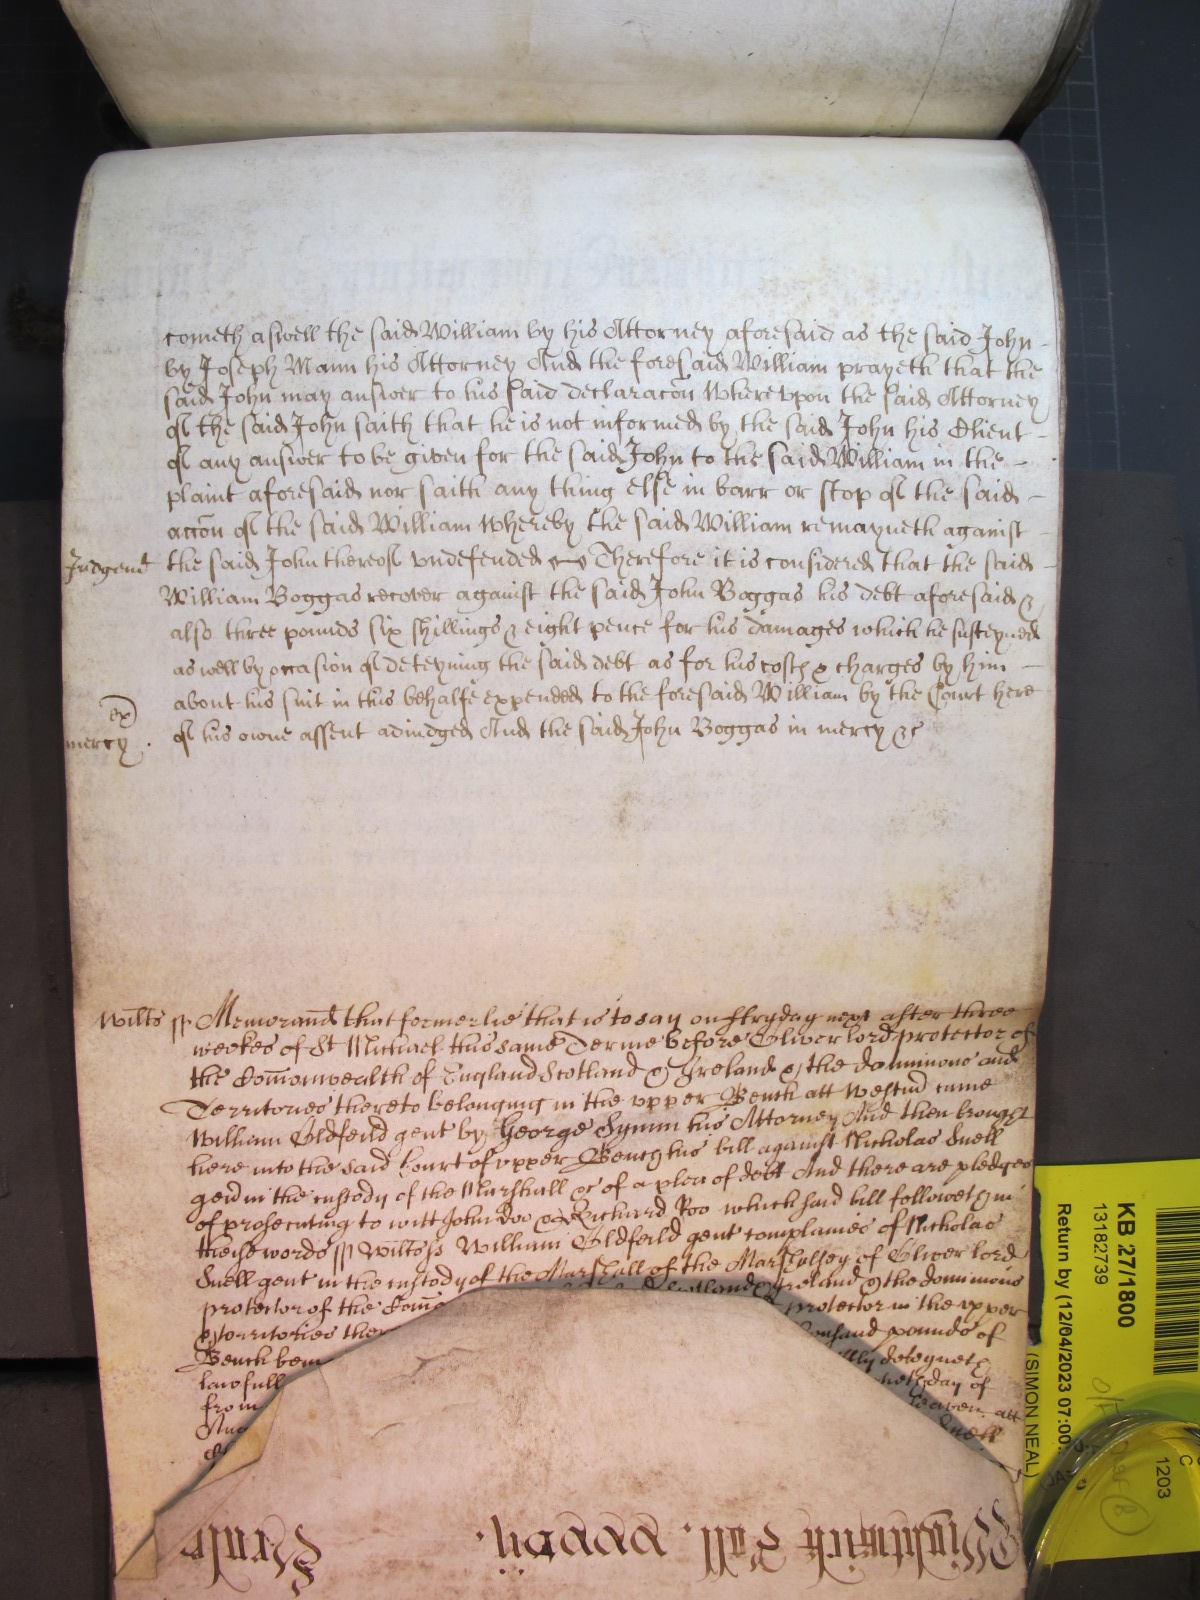 cometh aswell the said William by his Attorney aforesaid as the said John
by Joseph Mann his Attorney And the foresaid William prayeth that the
said John may answer to his said declaracon Wherevpon the said Attorney
of the said John saith that he is not informed by the said John his Client
of any answer to be given for the said John to the said William in the
plaint aforesaid nor saith any thing else in barr or stop of the said
accon of the said William whereby the said William remayneth against
Judgemt the said John thereof vndefended Therefore it is considered that the said
William Boggas recover against the said John Boggas his debt aforesaid &
also three pounds six shillings & eight pence for his damages which he susteyned
as well by occasion of deteyning the said debt as for his costs & charges by him
about his suit in this behalfe expended to the foresaid William by the Court here
mercy of his owne assent adiudged And the said John Boggas in mercy &c
Wilts ss Memorand that formerlie that is to say on ffryday next after three
weekes of St Michael this same Terme before Oliver lord protector of
the Comonwealth of England Scotland & Ireland & the dominions and
Territories thereto belonging in the vpper Bench att Westm came
William Oldfeild gent by George Symm his Attorney And then brought
here into the said Court of vpper Bench his bill against Nicholas Snell
gent in the custody of the Marshall &c of a plea of debt And there are pledges
of prosecuting to witt John Doo & Richard Roo which said bill followeth in
theise words ss Wilts ss William Oldfeild gent complaines of Nicholas
Snell gent in the custody of the Marshall of the Marshalsey of Oliver lord
protector of the Scotland & Ireland & the dominions
& territories protector in the vpper
Bench pounds of
lawfull deteyneth
from day of
att
Wightwick Roll
KB 27/1800
13182739
Return by (12/04/2023 07:00
(SIMON NEAL)
1203
C